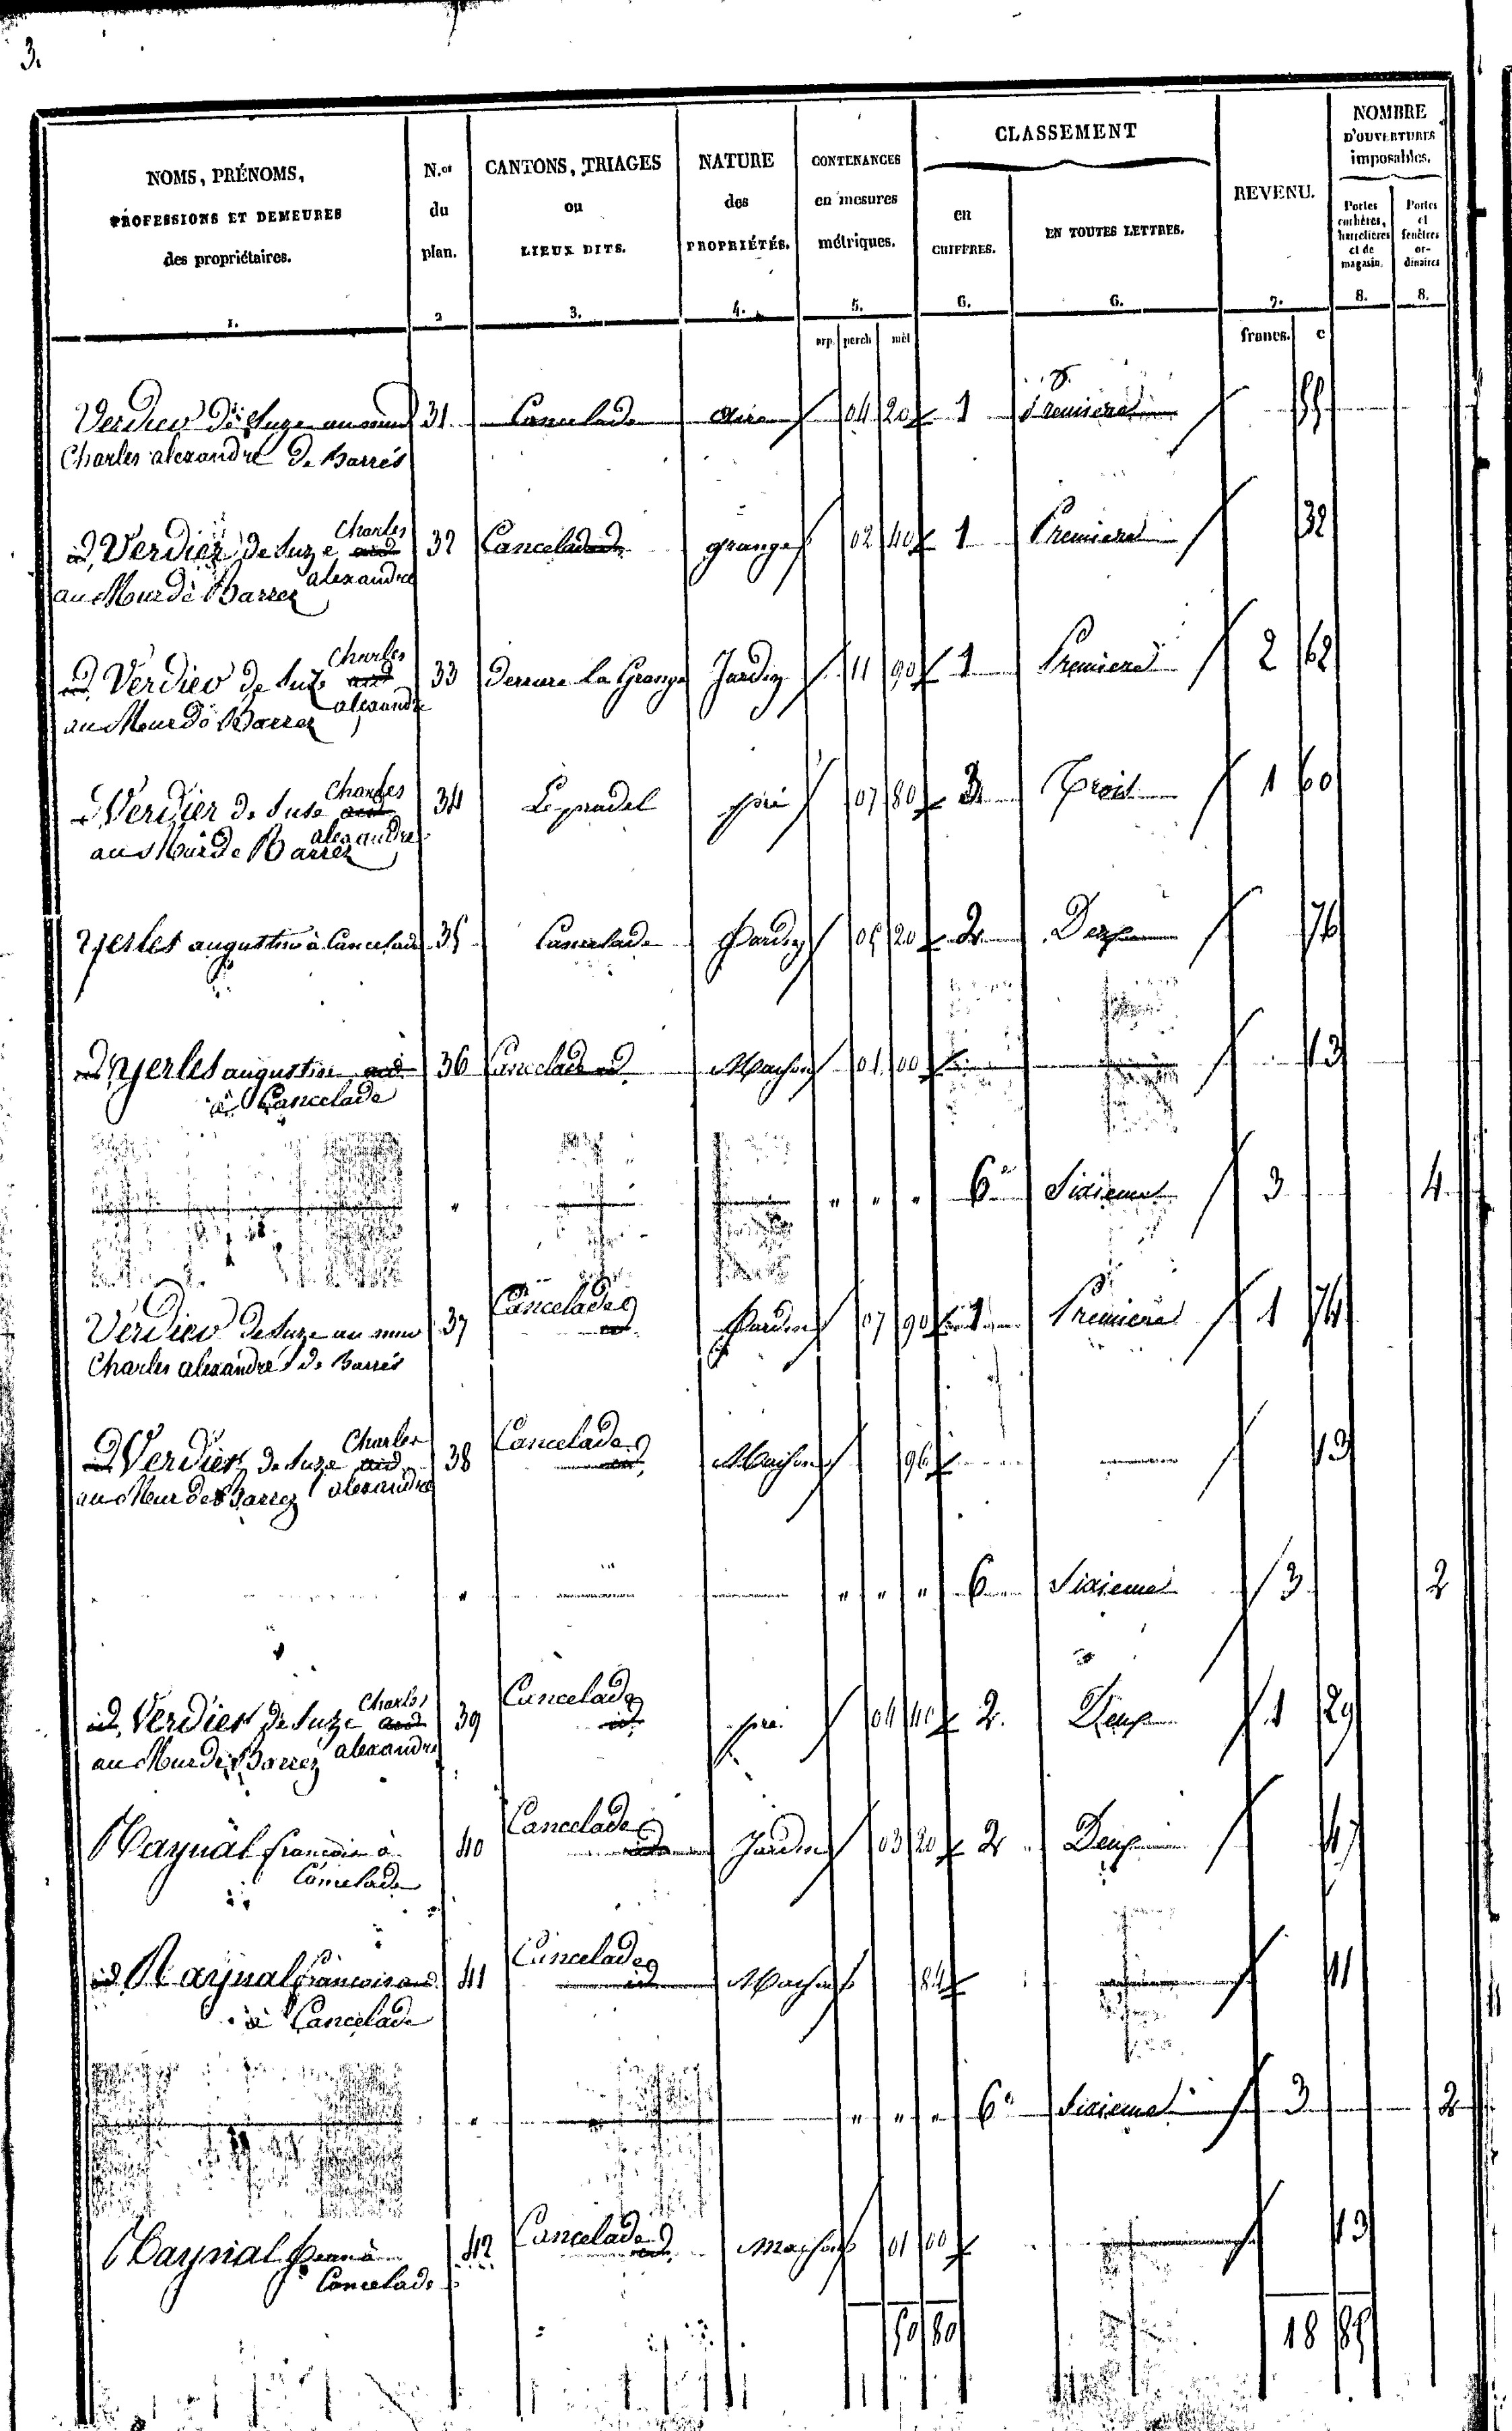 3.
NOMS, PRÉNOMS, PROFESSIONS ET DEMEURES des propriétaires. N.os du plan. CANTONS, TRIAGES ou LIEUX DITS. NATURE des PROPRIÉTÉS. CONTENANCES en mesures métriques. CLASSEMENT en CHIFFRES. EN TOUTES LETTRES. REVENU. NOMBRE D'OUVERTURES imposables. Portes cochères, charretières et de magasin. Portes et fenêtres ordinaires
1. 2 3. 4. 5. 6. 6. 7. 8. 8.
arp. perch mèt francs. c
Verdier de Suze au mur 31 Cancelade aire 04 20 1 Premiere 55
Charles alexandre de Barrés
id. Verdier de Suze id Charles 32 Cancelade id. grange 02 40 1 Premiere 32
au Mur de Barrez alexandre
id. Verdier de Suze id Charles 33 Derriere La Grange Jardin 11 90 1 Premiere 2 62
au Mur de Barrez alexandre
id Verdier de Suse id Charles 34 Le pradel pré 07 80 3 Trois 1 60
au Mur de Barrez alexandre
yerles augustin à Cancelade 35 Cancelade Jardin 05 20 2 Deux 76
id yerles augustin id 36 Cancelade id. Maison 01 00 13
à Cancelade
" " " " 6e Sixieme 3 4
Verdier de Suze au mur 37 Cancelade id. Jardin 07 90 1 Premiere 1 74
Charles alexandre de Barrés
id Verdier de Suze id Charles 38 Cancelade id. Maison 96 13
au Mur de Barrez alexandre
" " " " 6 Sixieme 3 2
id. Verdier de Suze id Charles 39 Cancelade id. pré 04 40 2. Deux 1 29
au Mur de Barrez alexandre
Raynal francois à 40 Cancelade id Jardin 03 20 2 Deux 47
Cancelade
id. Raynal francois id. 41 Cancelade id Maison 84 11
à Cancelade
" " " " 6e Sixieme 3 2
Raynal Jean à 42 Cancelade id. Maison 01 00 13
Cancelade
50 80 18 85